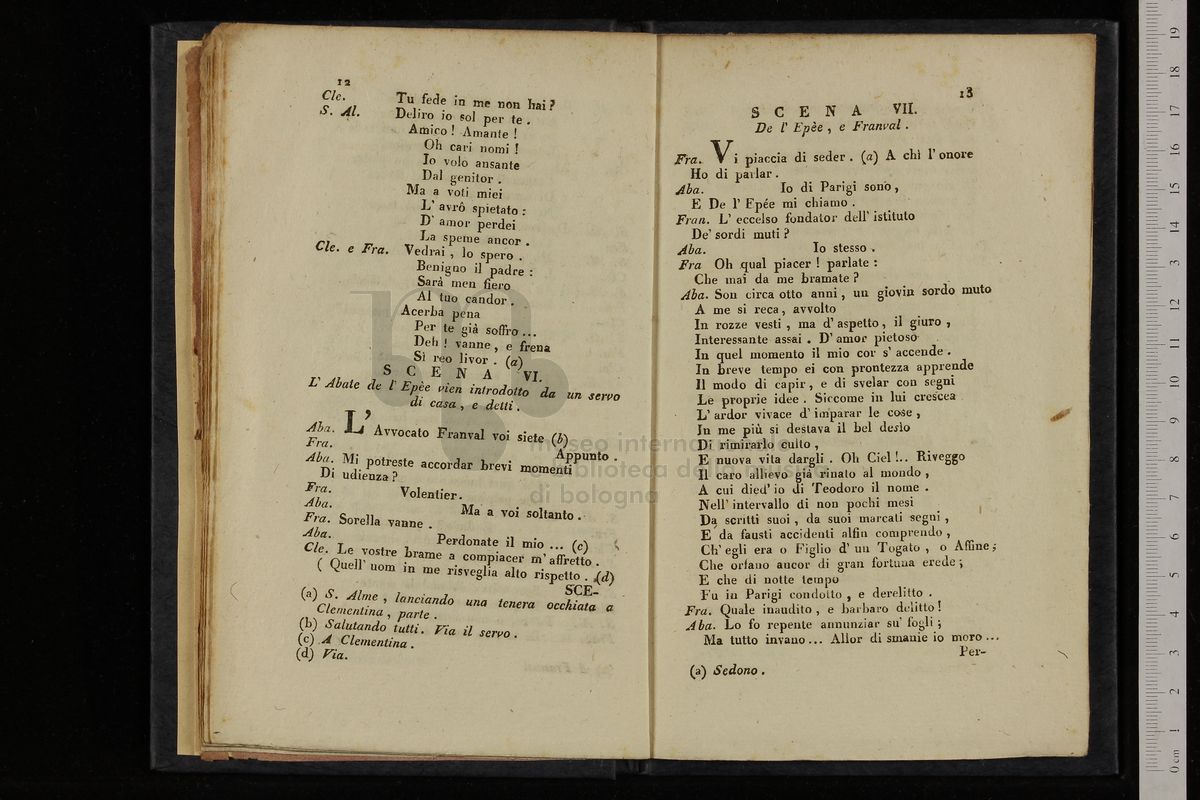 12
Cle. Tu fede in me non hai?
S. Al. Deliro io sol per te.
Amico! Amante!
Oh cari nomi!
Io volo ansante
Dal genitor.
Ma a voti miei
L' avrò spietato:
D' amor perdei
La speme ancor.
Cle. e Fra. Vedrai, lo spero.
Benigno il padre:
Sarà men fiero
Al tuo candor.
Acerba pena
Per te già soffro...
Deh! vanne, e frena
Sì reo livor. (a)
SCENA VI.
L' Abate de l' Epèe vien introdotto da un servo
di casa, e detti.
Aba. L' Avvocato Franval voi siete (b)
Fra. Appunto.
Aba. Mi potreste accordar brevi momenti
Di udienza?
Fra. Volentier.
Aba. Ma a voi soltanto.
Fra. Sorella vanne.
Aba. Perdonate il mio ... (c)
Cle. Le vostre brame a compiacer m' affretto.
( Quell' uom in me risveglia alto rispetto. (d)
SCE-
(a) S. Alme, lanciando una tenera occhiata a
Clementina, parte.
(b) Salutando tutti. Via il servo.
(c) A Clementina.
(d) Via.
13
SCENA VII.
De l' Epèe, e Franval.
Fra. Vi piaccia di seder. (a) A chì l' onore
Ho di parlar.
Aba. Io di Parigi sono,
E De l' Epée mi chiamo.
Fran. L' eccelso fondator dell' istituto
De' sordi muti?
Aba. Io stesso.
Fra Oh qual piacer! parlate:
Che mai da me bramate?
Aba. Son circa otto anni, un giovin sordo muto
A me si reca, avvolto
In rozze vesti, ma d' aspetto, il giuro,
Interessante assai. D' amor pietoso
In quel momento il mio cor s' accende.
In breve tempo ei con prontezza apprende
Il modo di capir, e di svelar con segni
Le proprie idee. Siccome in lui crescea
L' ardor vivace d' imparar le cose,
In me più si destava il bel desìo
Di rimirarlo culto,
E nuova vita dargli. Oh Ciel!.. Riveggo
Il caro allievo già rinato al mondo,
A cui died' io di Teodoro il nome.
Nell' intervallo di non pochi mesi
Da scritti suoi, da suoi marcati segni,
E da fausti accidenti alfin comprendo,
Ch' egli era o Figlio d' un Togato, o Affine;
Che orfano ancor di gran fortuna erede;
E che di notte tempo
Fu in Parigi condotto, e derelitto.
Fra. Quale inaudito, e barbaro delitto!
Aba. Lo fo repente annunziar su' fogli;
Ma tutto invano... Allor di smanie io moro...
Per-
(a) Sedono.
museo internazionale
biblioteca della musica
di bologna